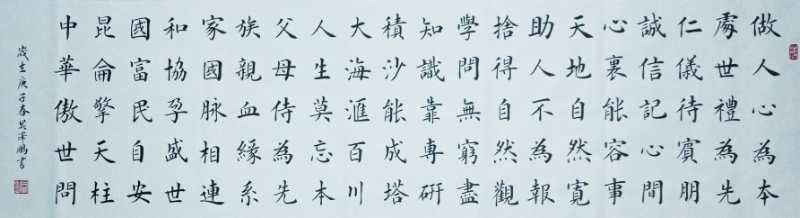 做人心為本
處世禮為先
仁儀待賓朋
誠信記心間
心裏能容事
天地自然寬
助人不為報
捨得自然觀
學問無窮盡
知識靠專研
積沙能成塔
大海滙百川
人生莫忘本
父母侍為先
族親血緣系
家國脉相連
和協孕盛世
國富民自安
昆侖擎天柱
中華傲世問
歲在庚子春鵬書